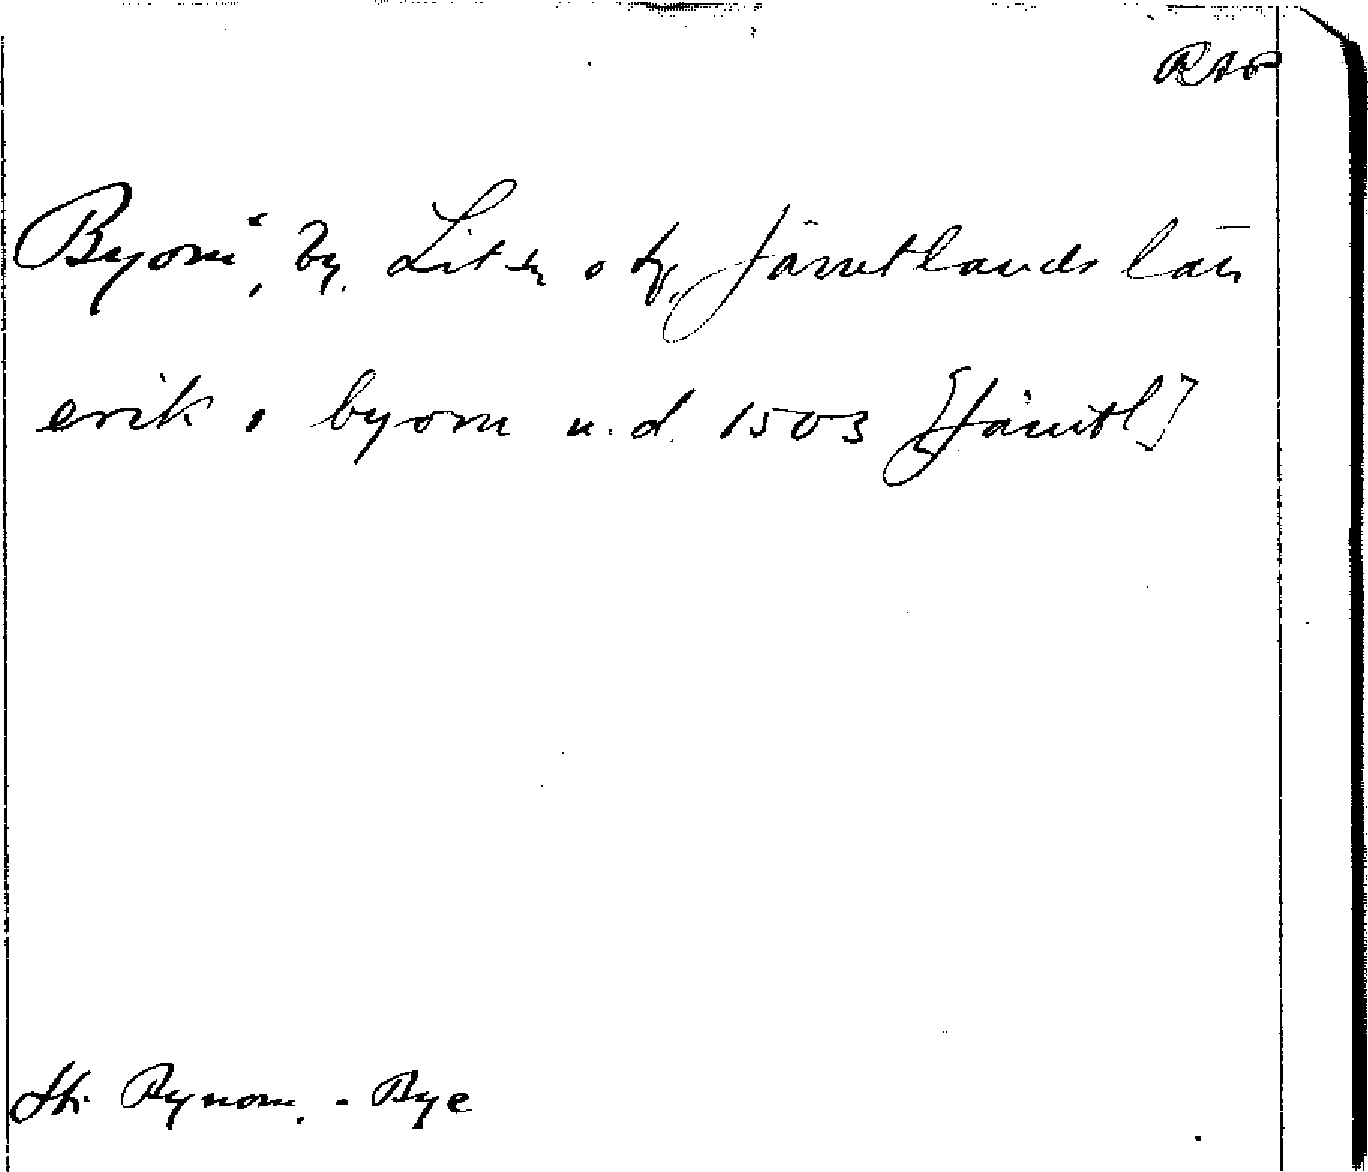 RAP
Byom, by, Lit sn o tg, Jämtlands län
erik i byom u.d. 1503 [Jämtl]
Jfr Bynom, - Bye